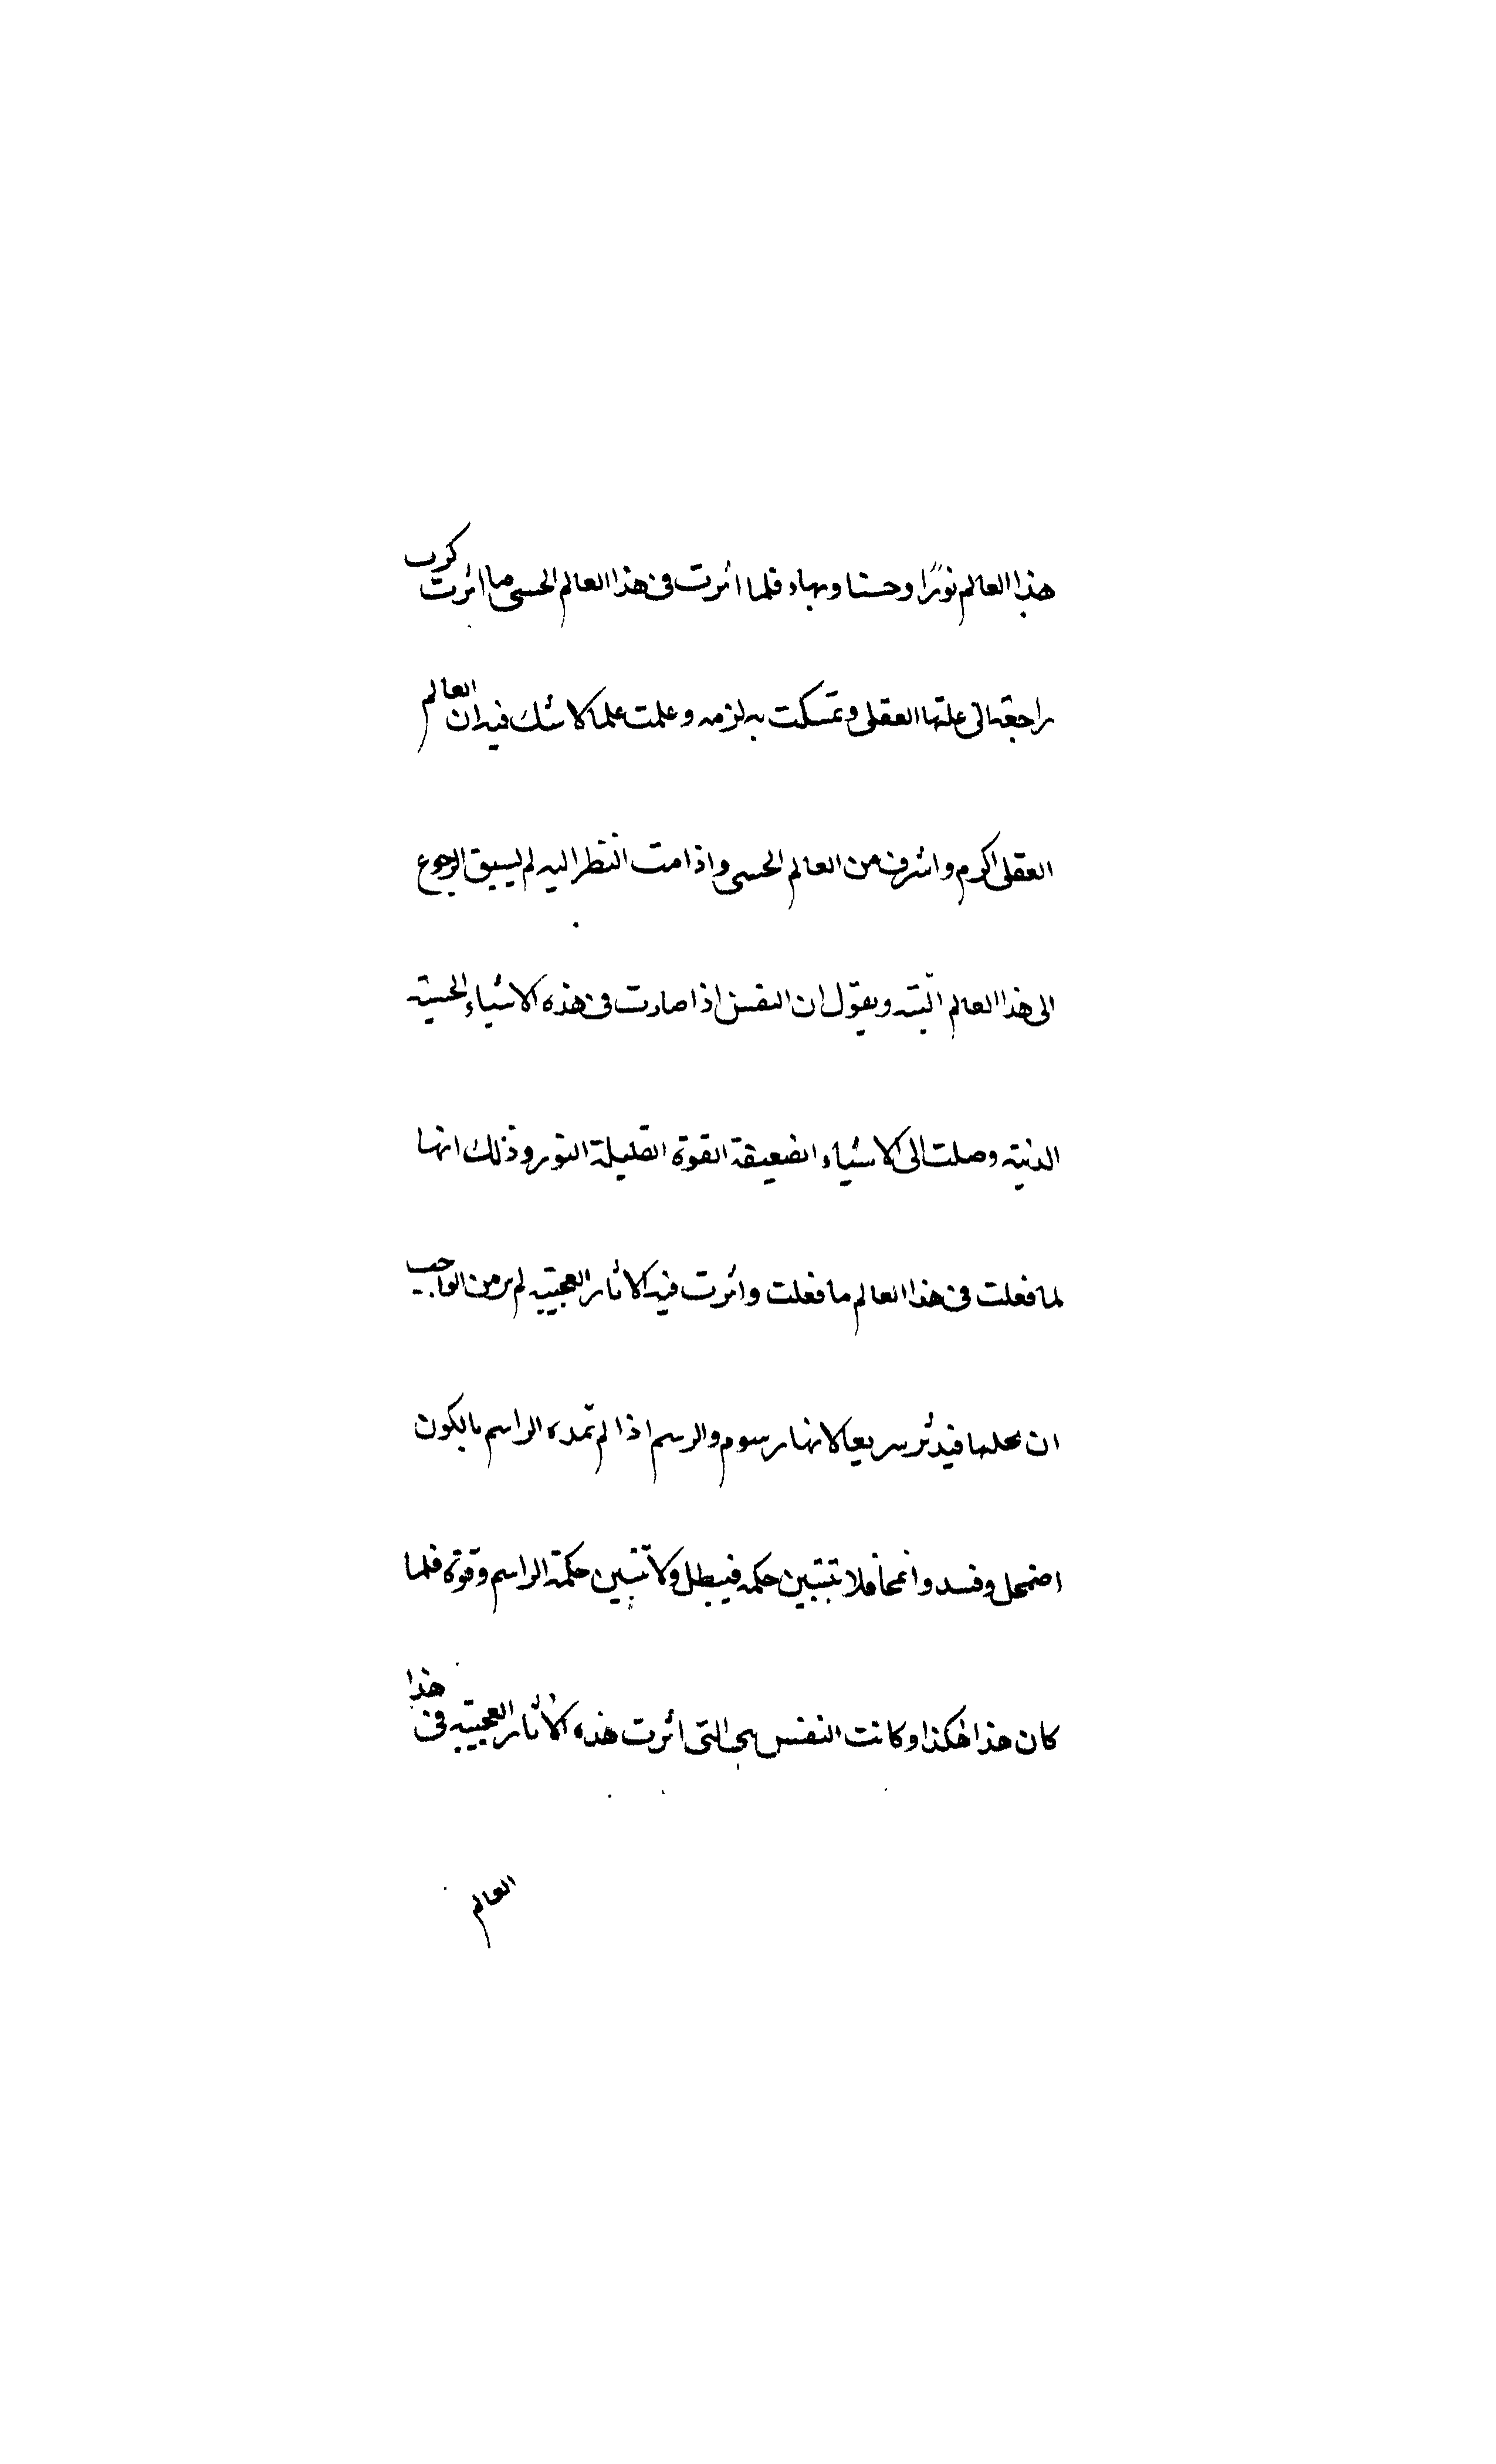 هذا العالم نورًا وحسنا وبهاء فلما اثرت فى هذا العالم الحسى ما اثرت كرت
راجعة الى علتها العقلى وتمسكت به لزمه وعلمت علما لا شك فيه ان العالم
العقلى اكرم واشرف من العالم الحسى واذا مت النظر اليه لم يسبق الرجوع
الى هذا العالم البتّه ويقول ان النفس اذا صارت فى هذه الاشياء الحسيّة
الدنيّه وصلت الى الاشياء الضعيفة القوة القليلة النور وذلك انها
لما فعلت فى هذا العالم ما فعلت واثرت فيه الاثار العجيبه لم تر من الواجب
ان فيدثر سريعا لانها رسوم والرسم اذا لم تمدّه الراسم بالكون
اضمحل وفسد وانمحا فلا تتبين حكمه فيبطل ولا تتبين حكمة الراسم وقوته فلما
كان هذا هكذا وكانت النفس هى التى اثرت هذه الاثار العجيبه فى هذا
العالم